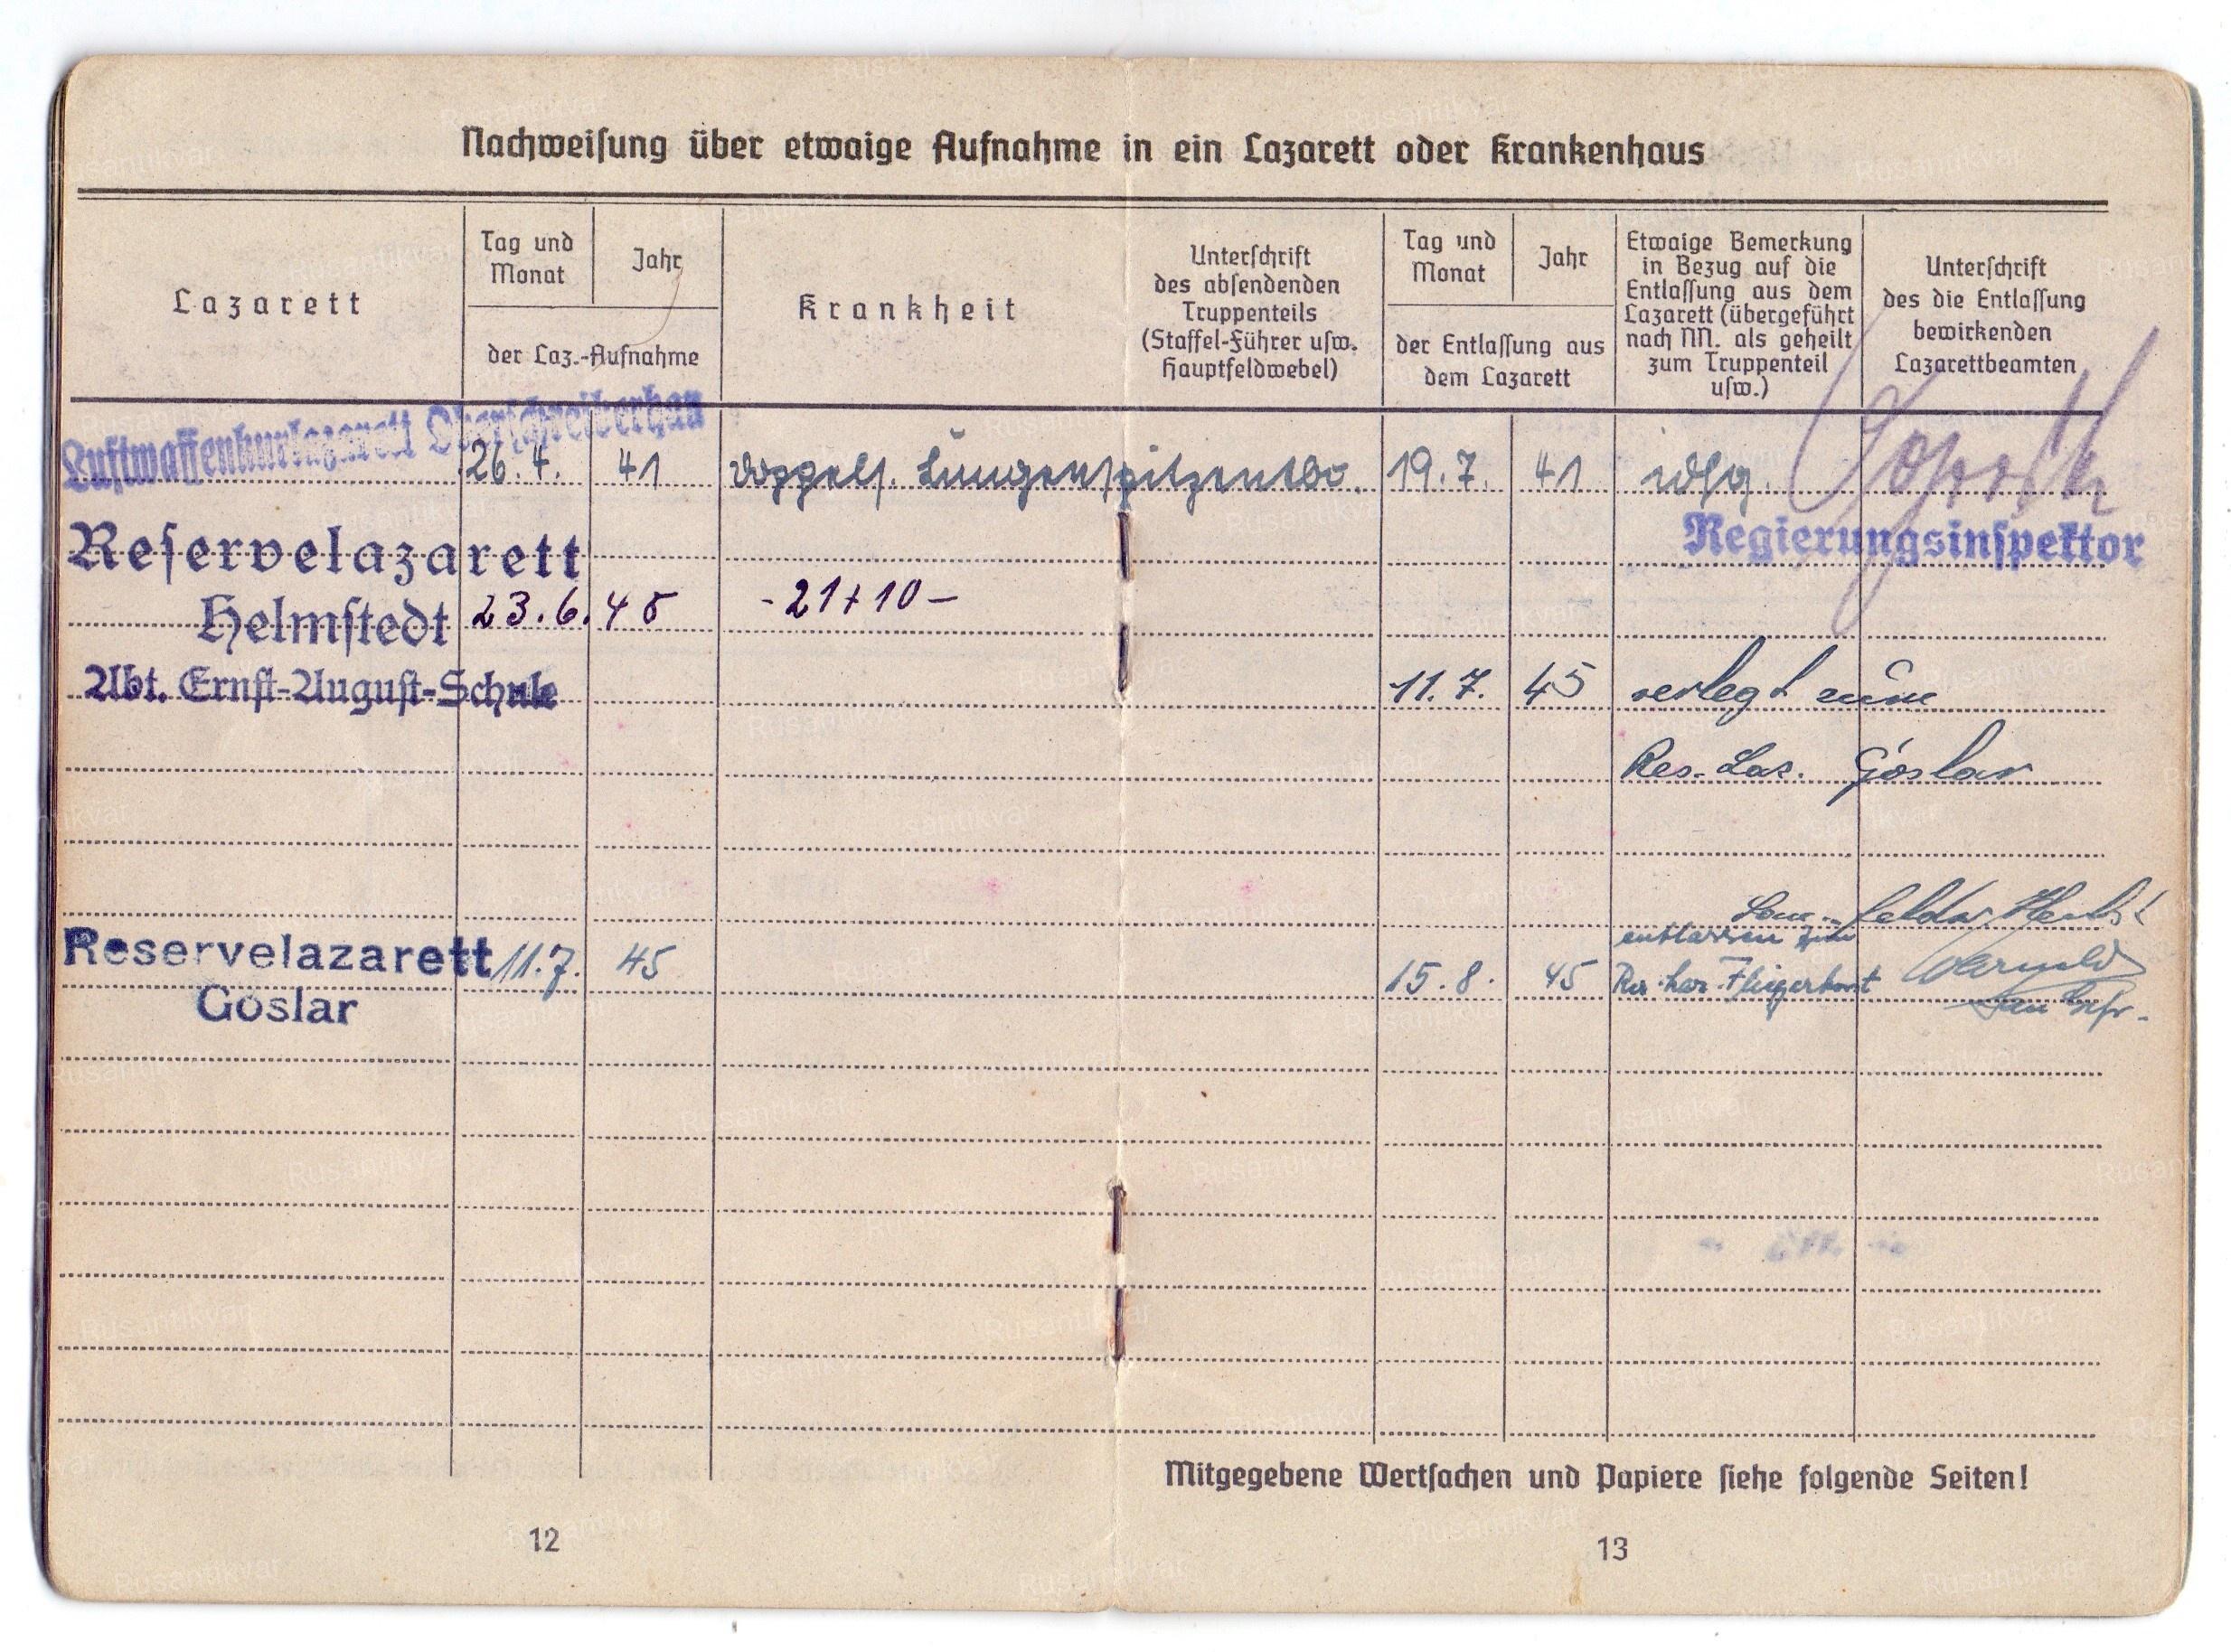 Nachweisung über etwaige Aufnahme in ein Lazarett oder Krankenhaus
Lazarett
Tag und
Monat
Jahr
der Laz.-Aufnahme
Krankheit
Unterschrift
des absendenden
Truppenteils
(Staffel-Führer usw.
Hauptfeldwebel)
Tag und
Monat
Jahr
der Entlassung aus
dem Lazarett
Etwaige Bemerkung
in Bezug auf die
Entlassung aus dem
Lazarett (übergeführt
nach NN. als geheilt
zum Truppenteil
usw.)
Unterschrift
des die Entlassung
bewirkenden
Lazarettbeamten
Luftwaffenkurlazarett Oberschreiberhau
26. 4. 41 doppels. Lungenspitzentbc. 19. 7. 41
Regierungsinspektor
Reservelazarett
Helmstedt 23. 6. 45 - 21 + 10 -
Abt. Ernst-August-Schule 11. 7. 45 verlegt zum
Res. Laz. Goslar
entlassen zum
Reservelazarett 11. 7. 45 15. 8. 45 Res. Laz. Fliegerhorst
Goslar
Mitgegebene Wertsachen und Papiere siehe folgende Seiten!
12
13
Rusantikvar